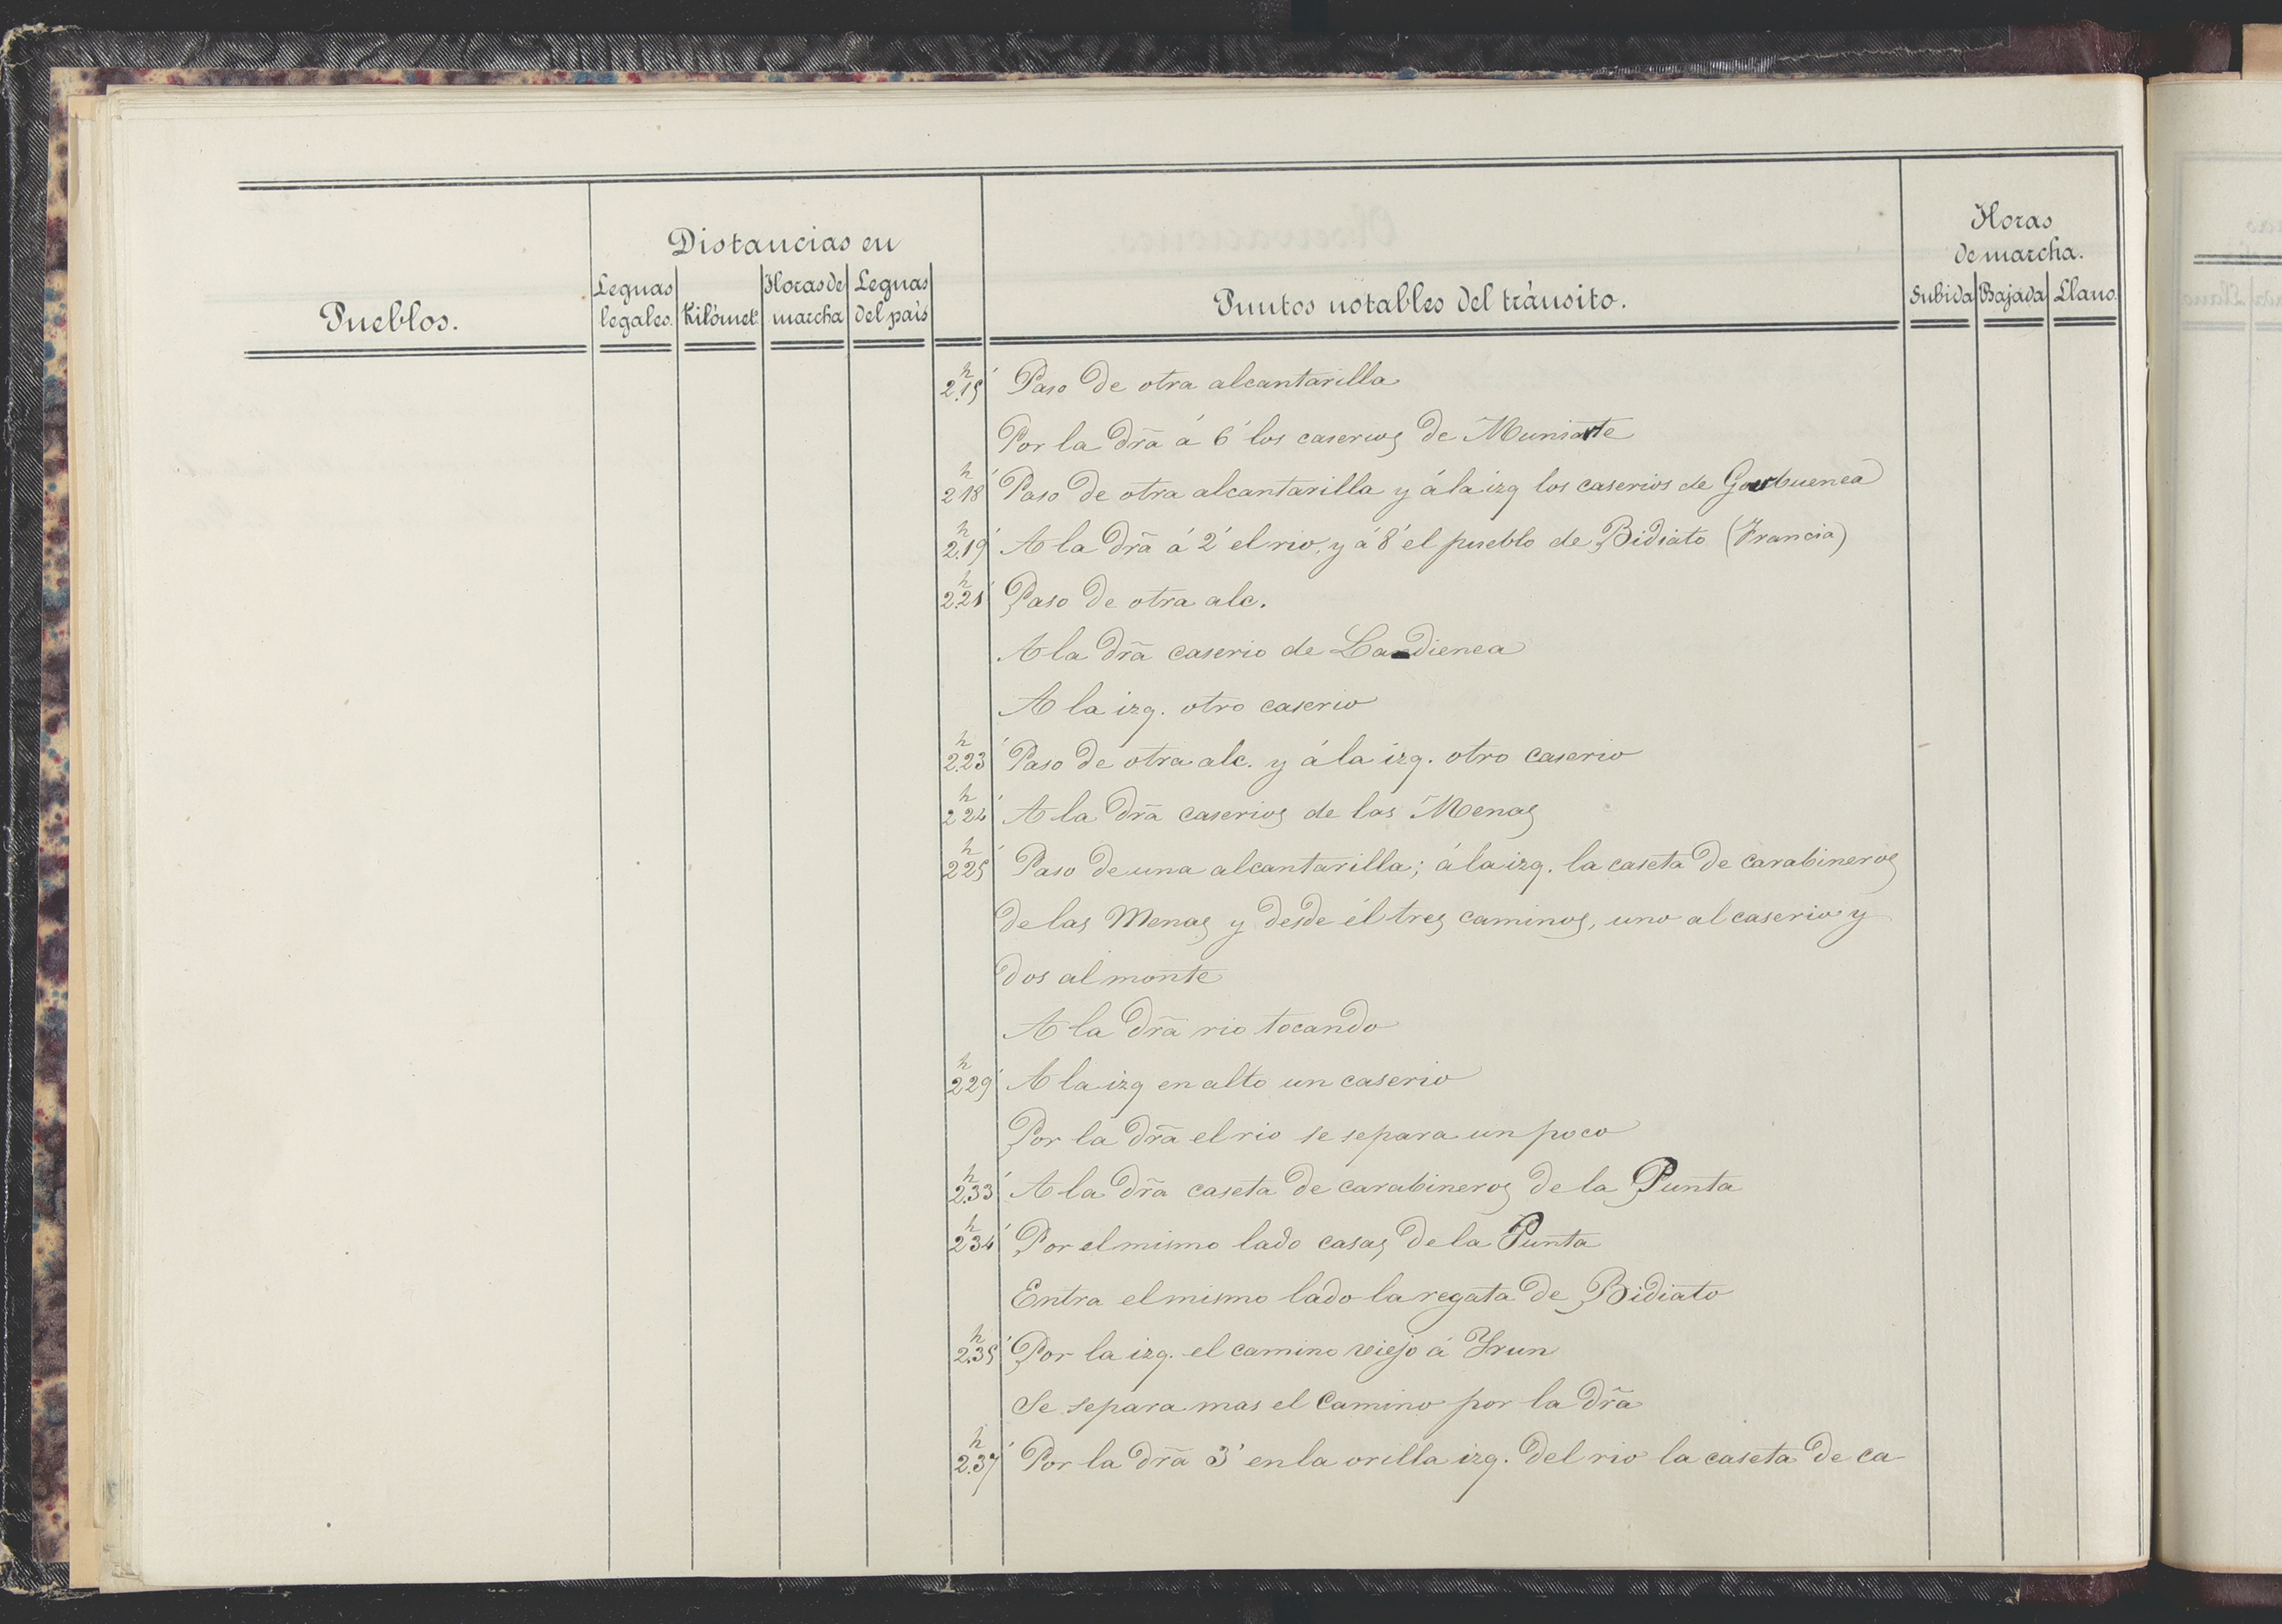 Pueblos.
Distancias en
Leguas legales.
Kilómet.
Horas de marcha
Leguas del país
Puntos notables del tránsito.
Horas de marcha.
Subida Bajada Llano.
2.h15' Paso de otra alcantarilla
Por la drã á 6' los caserios de
2.h18' Paso de otra alcantarilla y á la izq los caserios de
2.h19' A la drã á 2' el rio, y á 8' el pueblo de Bidiato (Francia)
2.h21' Paso de otra alc.
A la drã caserio de
A la izq. otro caserio
2.h23' Paso de otra alc. y á la izq. otro caserio
2.h24' A la drã caserios de las Menas
2.h25' Paso de una alcantarilla; á la izq. la caseta de carabineros
de las Menas y desde él tres caminos, uno al caserio y
dos al monte
A la drã rio tocando
2.h29' A la izq en alto un caserio
Por la drã el rio se separa un poco
2.h33' A la drã caseta de carabineros de la Punta
2.h34' Por el mismo lado casas de la Punta
Entra el mismo lado la regata de Bidiato
2.h35' Por la izq. el camino viejo á Yrun
Se separa mas el camino por la drã
2.h37' Por la drã 3' en la orilla izq. del rio la caseta de ca-